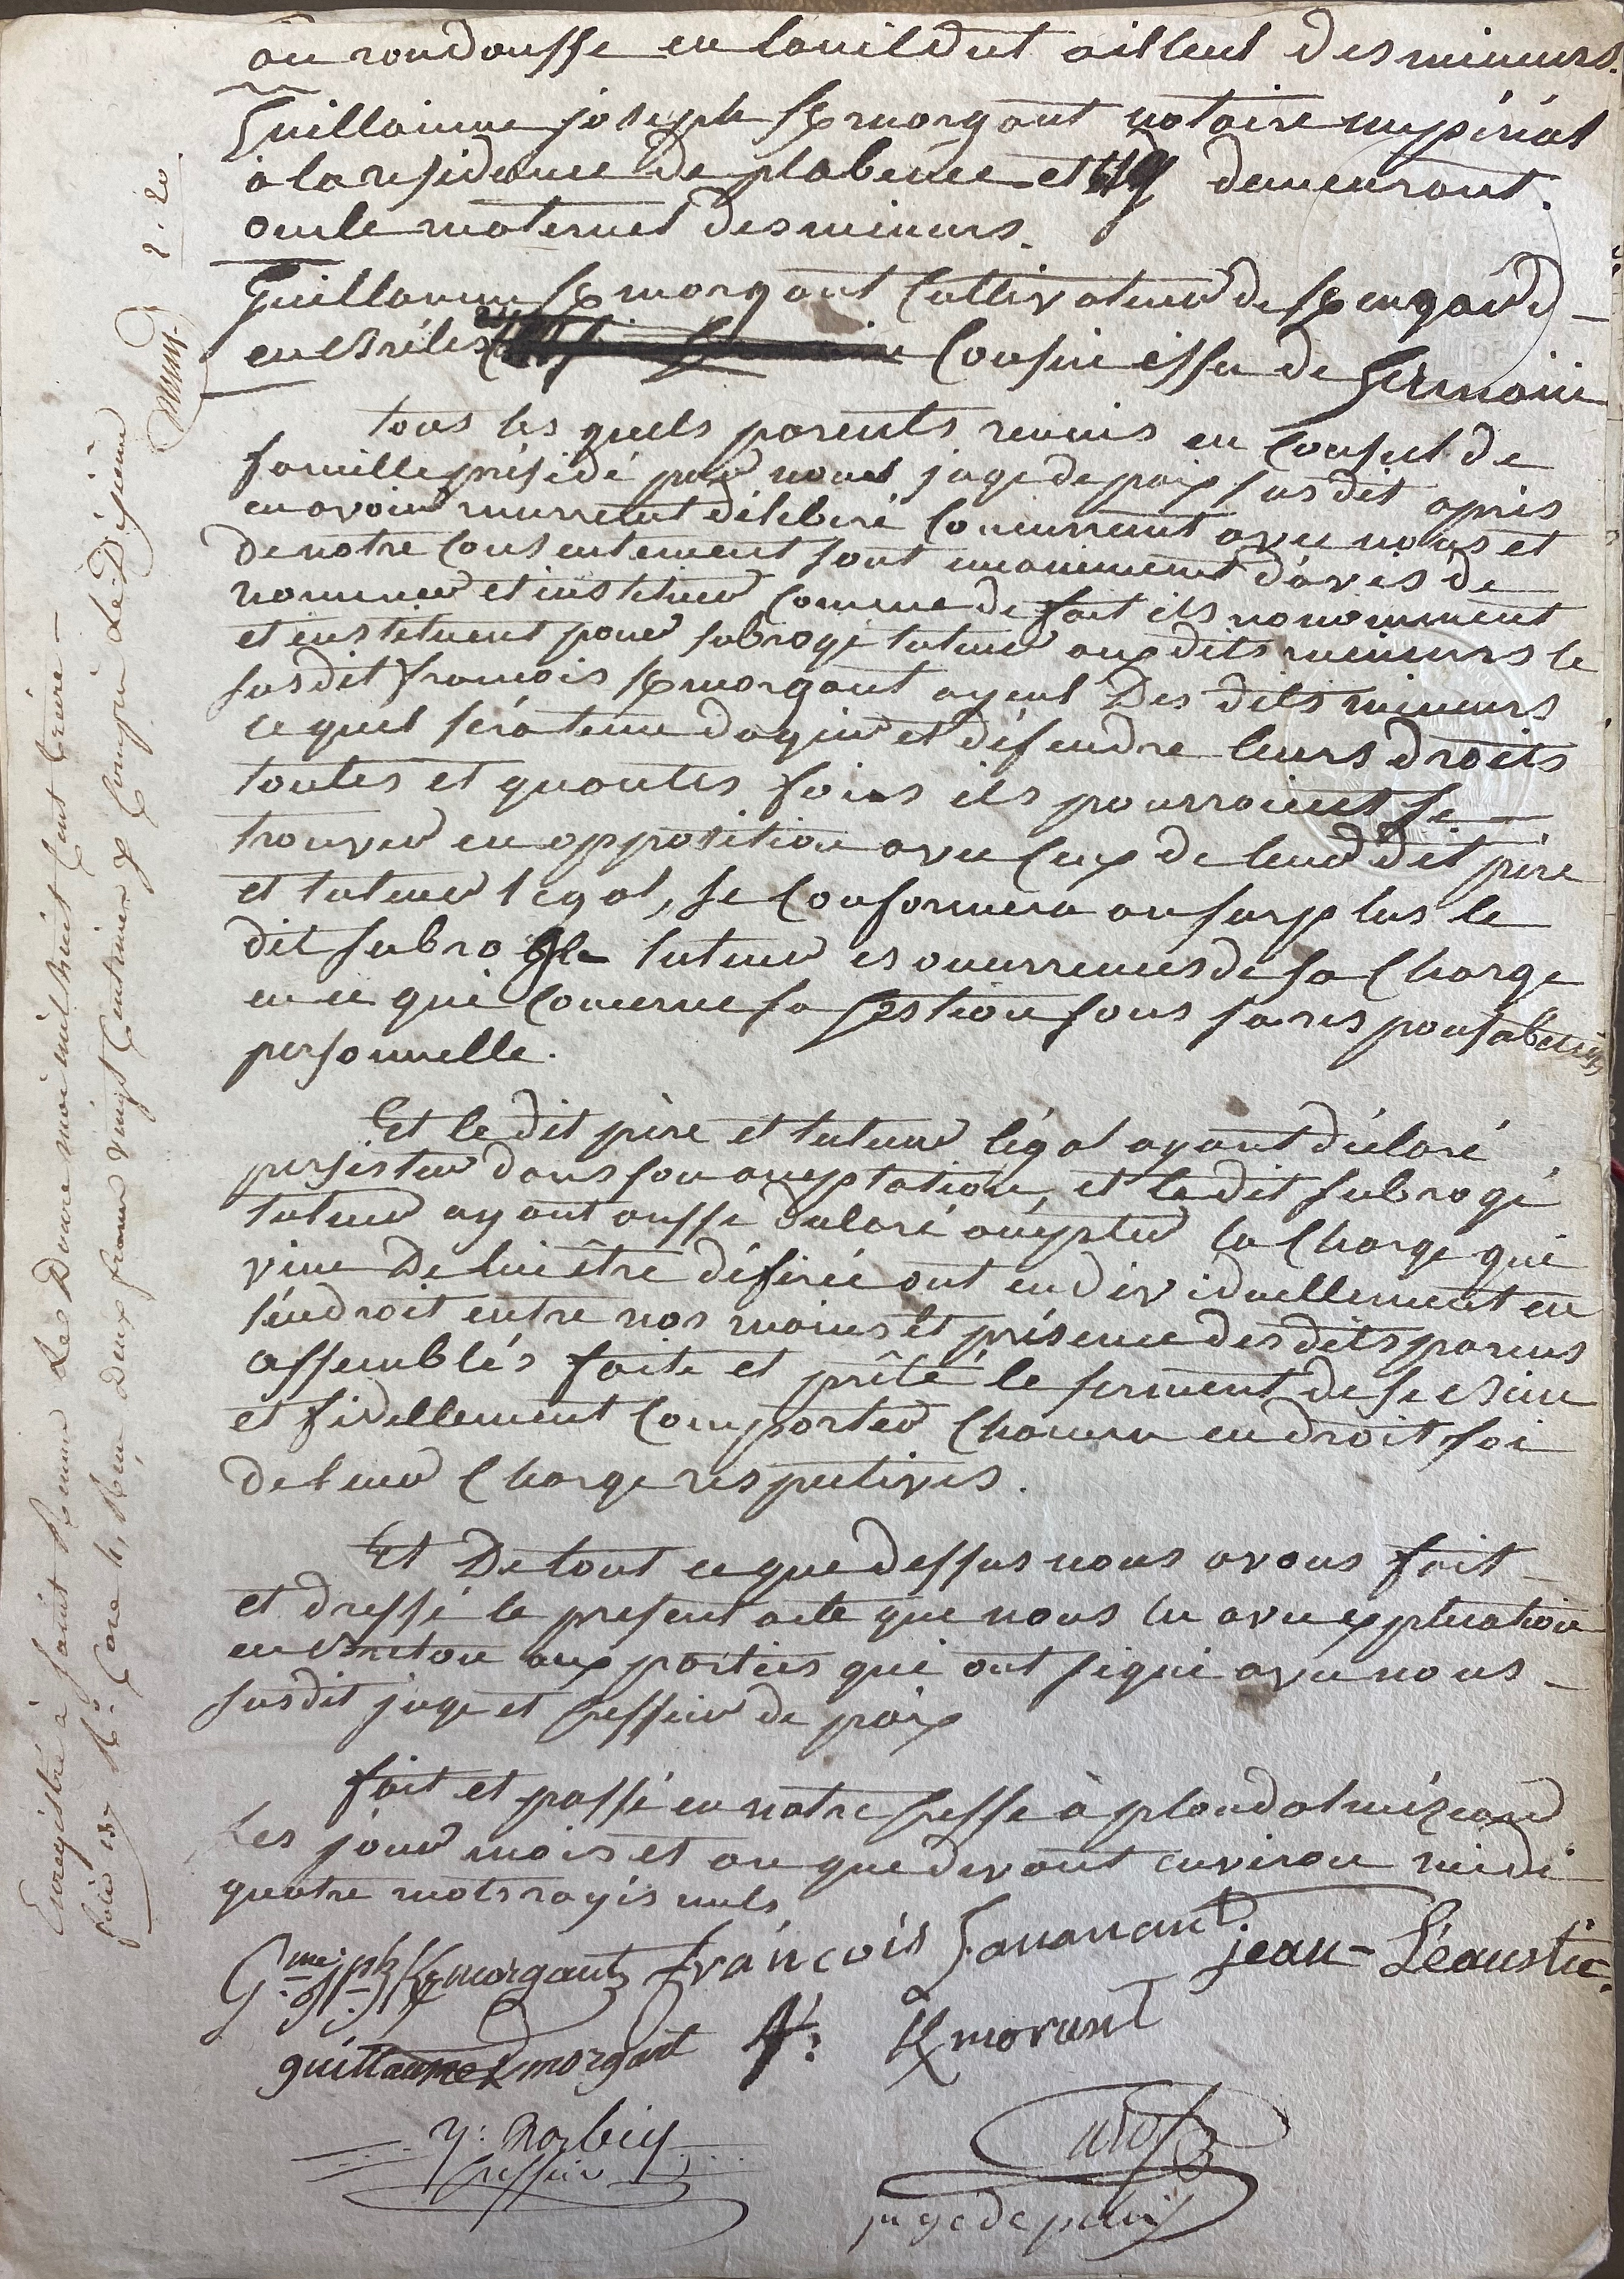 au roudousse en lanildut ailleul des mineurs.
Guillaume joseph Kmorgant notaire impérial
a la residence de plabenec et y demeurant.
oncle maternel des mineurs.
Guillaume Kmorgant Cultivateur de Kengard
en Brélès Cousin issu de Germain
tous les quels parents reunis en Conseil de
famille présidé par nous juge de paix susdit après
en avoir murement déliberé Concurrement avec nous et
de notre Consentement sont unanimement d'avis de
nommer et instituer Comme de fait ils nonomment
et instituent pour subrogé tuteur auxdits mineurs le
susdit françois Kmorgant ayeul Des dits mineurs
le quel séra tenu dagir et défendre leurs droits
toutes et quantes fois ils pourroient se
trouver en opposition avec Ceux de leur dit père
et tuteur légal, se Conformera au surplus le
dit subrogé tuteur es ouurrences de sa Charge
en ce qui Concerne sa Gestion sous sa responsabilité
personnelle.
Et le dit père et tuteur légal ayant déclaré
persister dans son acceptation, et le dit subrogé
tuteur ayant aussi déclaré accépter la Charge qui
vien De lui être déférée ont endividuellement en
l'endroit entre nos mains et présence des dits parens
assemblés faite et prêté le serment de se bien
et fidellement Comporter Chacun en droit soi
de leur Charge respectives.
Et De tout ce que dessus nous avons fait
et dressé le present acte que nous lu avec explication
en Breton aux parties qui ont signé avec nous
susdit juge et Greffier de paix
fait et passé en notre Greffe à ploudalmézeau
les jour mois et an que devant environ midi
quatre mots rayés nuls
Gme Jph Kmorgant françois jean Léaustic
guillaume Kmorgant f: Kmorvent
Greffier
juge de paix
Enregistré à saint Renan Le Douze mai mil huit Cent treize
folio 137 Rto Case 4, Reçu Deux francs vingt Centimes y Compris Le Dixieme
2.20